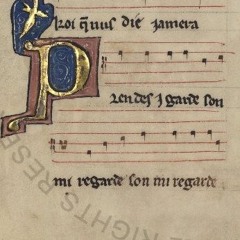 uroi q̄ nus die iamera
P
rendes i garde son
mi regarde son mi regarde
RIGHTS RESE